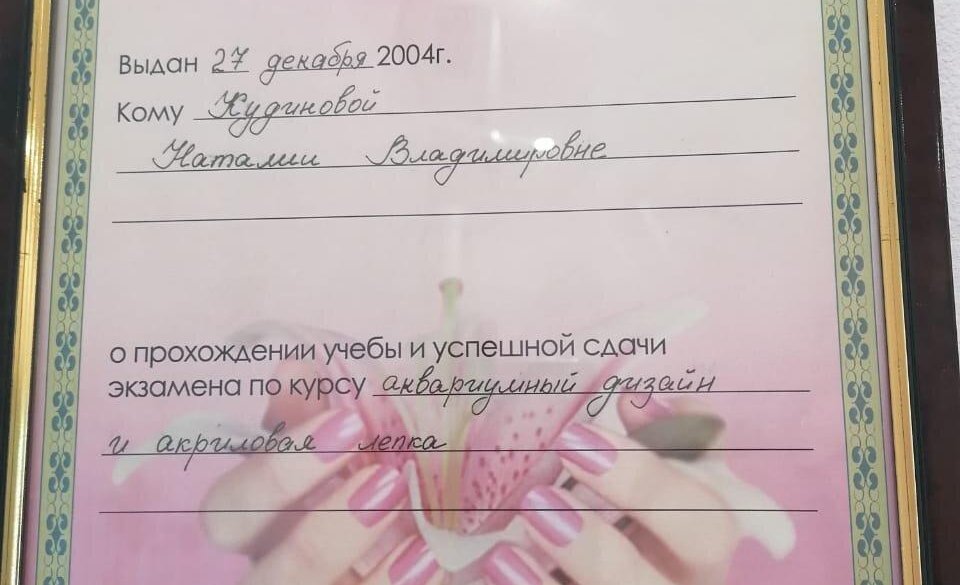 Выдан 27 декабря 2004г.
Кому Кудиновой
Наталии Владимировне
о прохождении учебы и успешной сдачи
экзамена по курсу аквариумный дизайн
и акриловая лепка